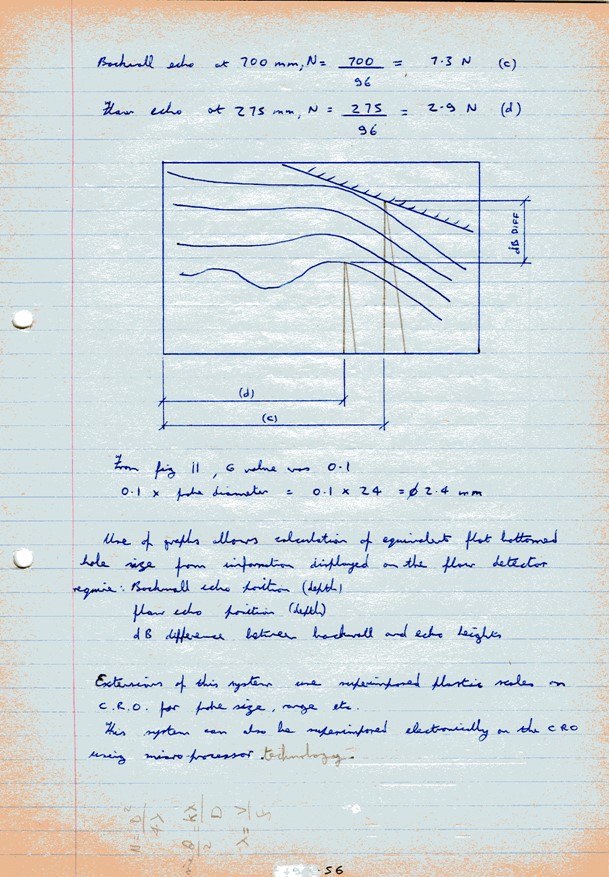 Backwall echo at 700 mm, N = 700/96 = 7.3 N (c)
Flaw echo at 275 mm, N = 275/96 = 2.9 N (d)
dB DIFF
(d)
(c)
From fig 11, G value was 0.1
0.1 x probe diameter = 0.1 x 24 = ϕ 2.4 mm
Use of graphs allows calculation of equivalent flat bottomed
hole size from information displayed on the flaw detector
require: Backwall echo position (depth)
flaw echo position (depth)
dB difference between backwall and echo heights
Extensions of this system use superimposed plastic scales on
C.R.O. for probe size, range etc.
This system can also be superimposed electronically on the CRO
using micro processor technology.
N = D²/4λ
Kλ/D
λ = V/f
56